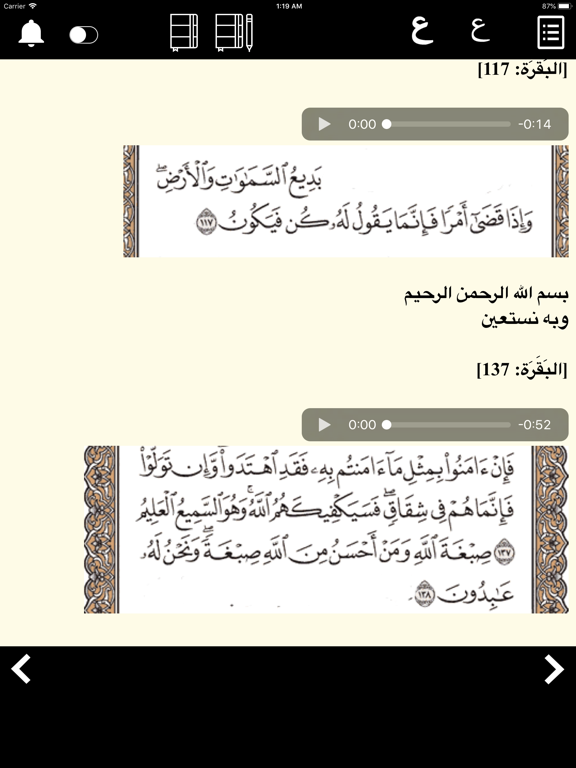 Carrier 1:19 AM 87%
ع ع
[البَقَرَة: 117]
0:00 -0:14
بَدِيعُ ٱلسَّمَٰوَٰتِ وَٱلْأَرْضِۖ
وَإِذَا قَضَىٰٓ أَمْرًا فَإِنَّمَا يَقُولُ لَهُۥ كُن فَيَكُونُ ١١٧
بسم الله الرحمن الرحيم
وبه نستعين
[البَقَرَة: 137]
0:00 -0:52
فَإِنْ ءَامَنُوا۟ بِمِثْلِ مَآ ءَامَنتُم بِهِۦ فَقَدِ ٱهْتَدَوا۟ۖ وَّإِن تَوَلَّوْا۟
فَإِنَّمَا هُمْ فِى شِقَاقٍۖ فَسَيَكْفِيكَهُمُ ٱللَّهُۚ وَهُوَ ٱلسَّمِيعُ ٱلْعَلِيمُ
١٣٧ صِبْغَةَ ٱللَّهِ وَمَنْ أَحْسَنُ مِنَ ٱللَّهِ صِبْغَةًۖ وَنَحْنُ لَهُۥ
عَٰبِدُونَ ١٣٨